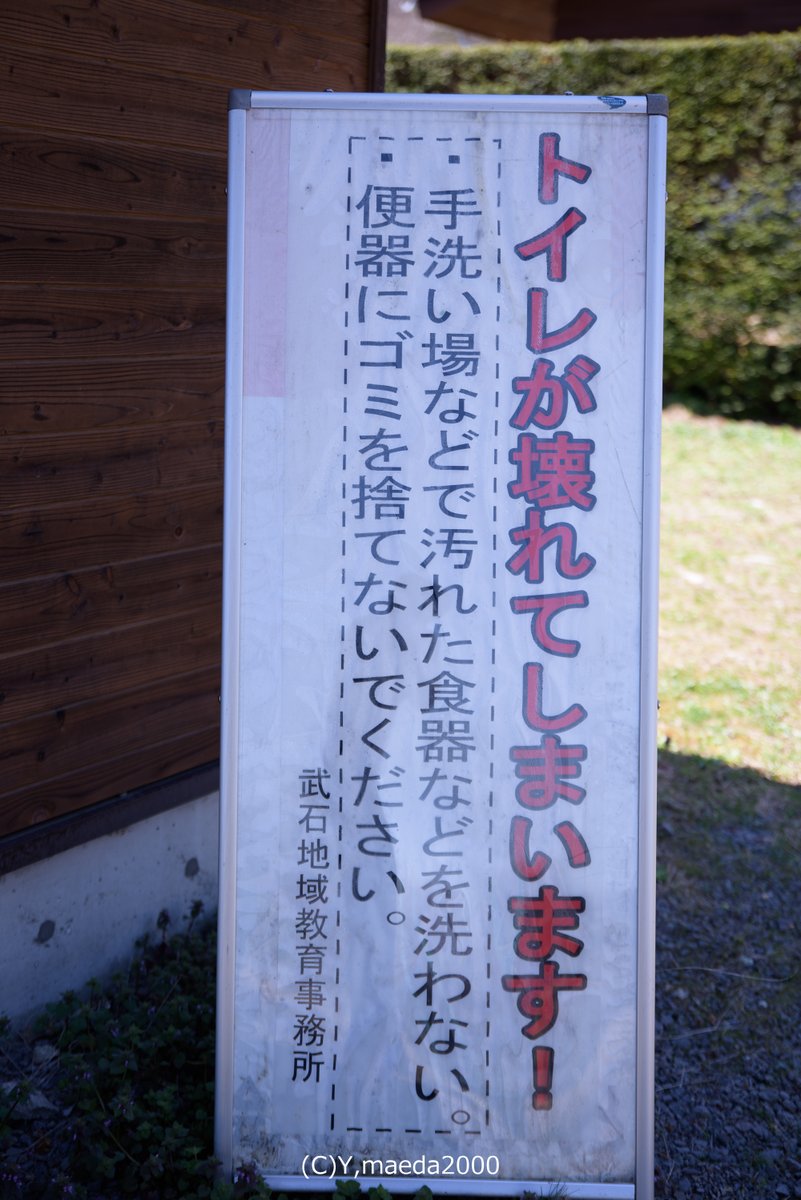 トイレが壊れてしまいます!
・手洗い場などで汚れた食器などを洗わない。
・便器にゴミを捨てないでください。
武石地域教育事務所
(C)Y,maeda2000